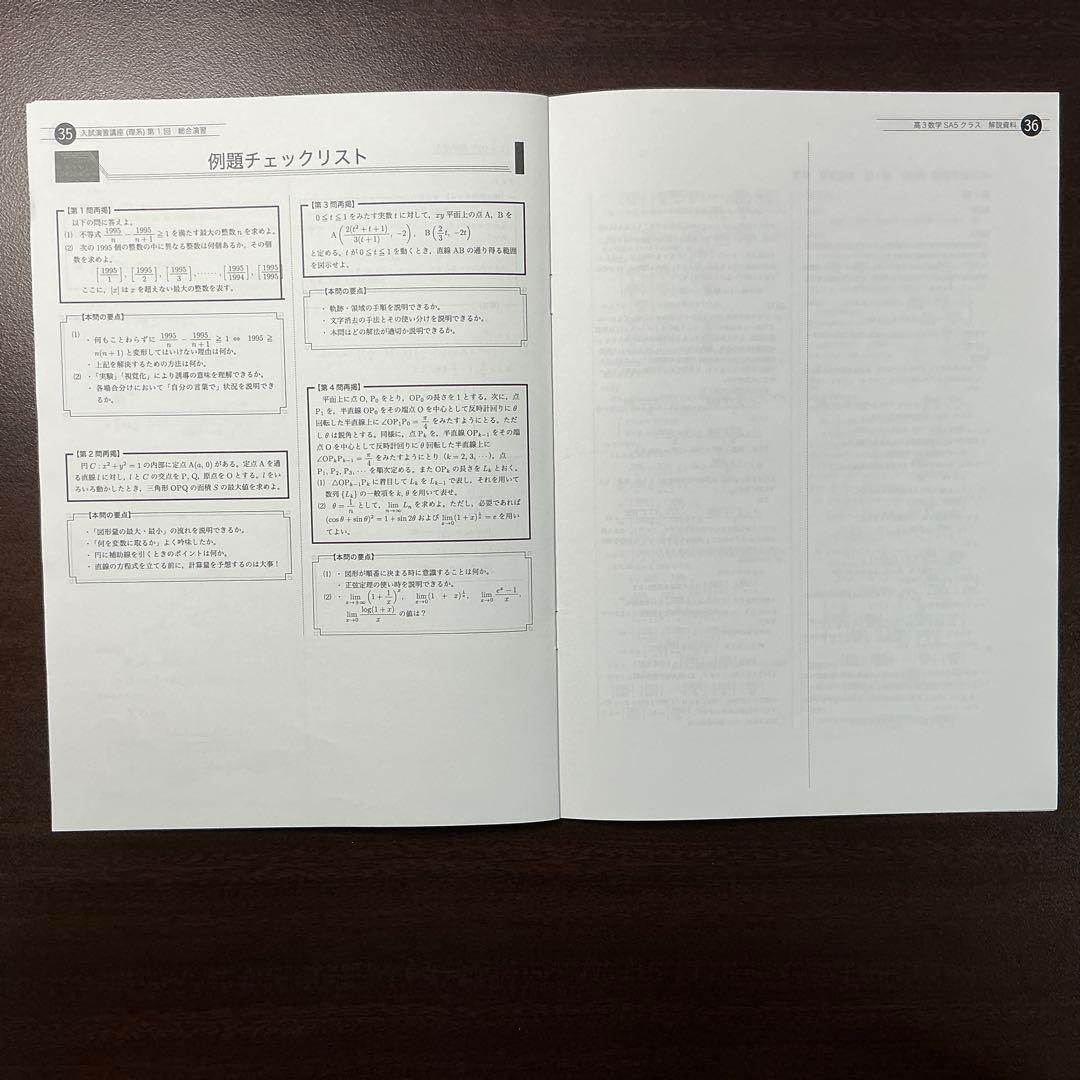 35 入試演習講座(理系)第1回 総合演習
例題チェックリスト
【第1問再掲】
以下の問に答えよ。
(1) 不等式 1995/n − 1995/(n+1) ≧ 1 を満たす最大の整数 n を求めよ。
(2) 次の 1995 個の整数の中に異なる整数は何個あるか。その個
数を求めよ。
[1995/1], [1995/2], [1995/3], ……, [1995/1994], [1995/1995]
ここに、[x] は x を超えない最大の整数を表す。
【本問の要点】
(1)
・何もことわらずに 1995/n − 1995/(n+1) ≧ 1 ⇔ 1995 ≧
n(n+1) と変形してはいけない理由は何か。
・上記を解決するための方法は何か。
(2) ・「実験」「視覚化」により誘導の意味を理解できるか。
・各場合分けにおいて「自分の言葉で」状況を説明でき
るか。
【第2問再掲】
円 C : x² + y² = 1 の内部に定点 A(a, 0) がある。定点 A を通
る直線 l に対し、l と C の交点を P, Q, 原点を O とする。l をい
ろいろ動かしたとき、三角形 OPQ の面積 S の最大値を求めよ。
【本問の要点】
・「図形量の最大・最小」の流れを説明できるか。
・「何を変数に取るか」よく吟味したか。
・円に補助線を引くときのポイントは何か。
・直線の方程式を立てる前に、計算量を予想するのは大事!
【第3問再掲】
0 ≦ t ≦ 1 をみたす実数 t に対して、xy 平面上の点 A, B を
A(2(t²+t+1)/3(t+1), −2), B(2/3 t, −2t)
と定める。t が 0 ≦ t ≦ 1 を動くとき、直線 AB の通り得る範囲
を図示せよ。
【本問の要点】
・軌跡・領域の手順を説明できるか。
・文字消去の手法とその使い分けを説明できるか。
・本問はどの解法が適切か説明できるか。
【第4問再掲】
平面上に点 O, P₀ をとり、OP₀ の長さを 1 とする。次に、点
P₁ を、半直線 OP₀ をその端点 O を中心として反時計回りに θ
回転した半直線上に ∠OP₁P₀ = π/4 をみたすようにとる。ただ
し θ は鋭角とする。同様に、点 Pₖ を、半直線 OPₖ₋₁ をその端
点 O を中心として反時計回りに θ 回転した半直線上に
∠OPₖPₖ₋₁ = π/4 をみたすようにとり (k = 2, 3, …), 点
P₁, P₂, P₃, … を順次定める。また OPₖ の長さを Lₖ とおく。
(1) △OPₖ₋₁Pₖ に着目して Lₖ を Lₖ₋₁ で表し、それを用いて
数列 {Lₖ} の一般項を k, θ を用いて表せ。
(2) θ = 1/n として、lim_{n→∞} Lₙ を求めよ。ただし、必要であれば
(cos θ + sin θ)² = 1 + sin 2θ および lim_{x→0} (1+x)^{1/x} = e を用い
てよい。
【本問の要点】
(1) ・図形が順番に決まる時に意識することは何か。
・正弦定理の使い時を説明できるか。
(2) ・lim_{x→±∞} (1 + 1/x)^x, lim_{x→0} (1 + x)^{1/x}, lim_{x→0} (eˣ−1)/x,
lim_{x→0} log(1+x)/x の値は?
高3数学 SA5クラス 解説資料 36